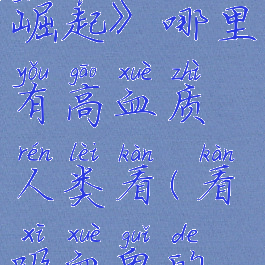 崛起》哪里
yǒu gāo xuè zhì
有高血质
rén lèi kàn kàn
人类看(看
xī xuè guǐ de
吸血鬼的